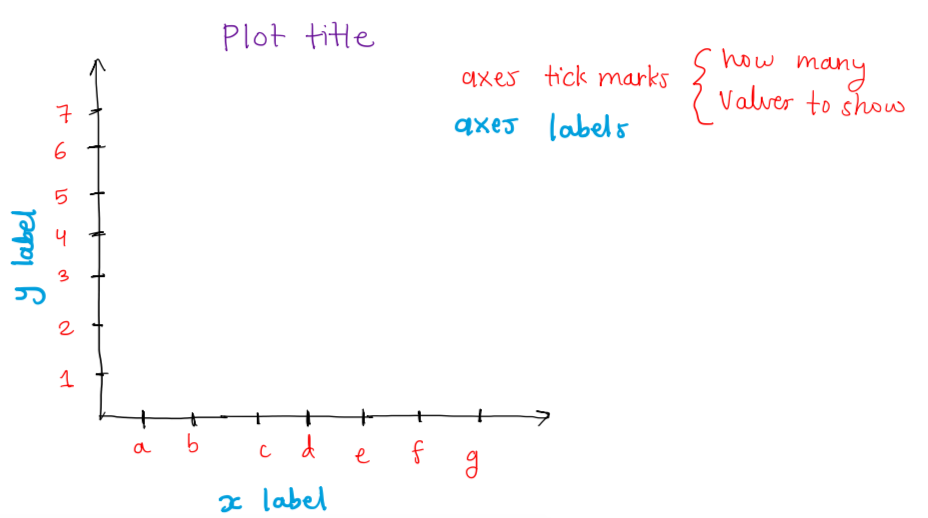 Plot title
axes tick marks { how many
values to show
axes labels
7
6
5
4
3
2
1
y label
a b c d e f g
x label